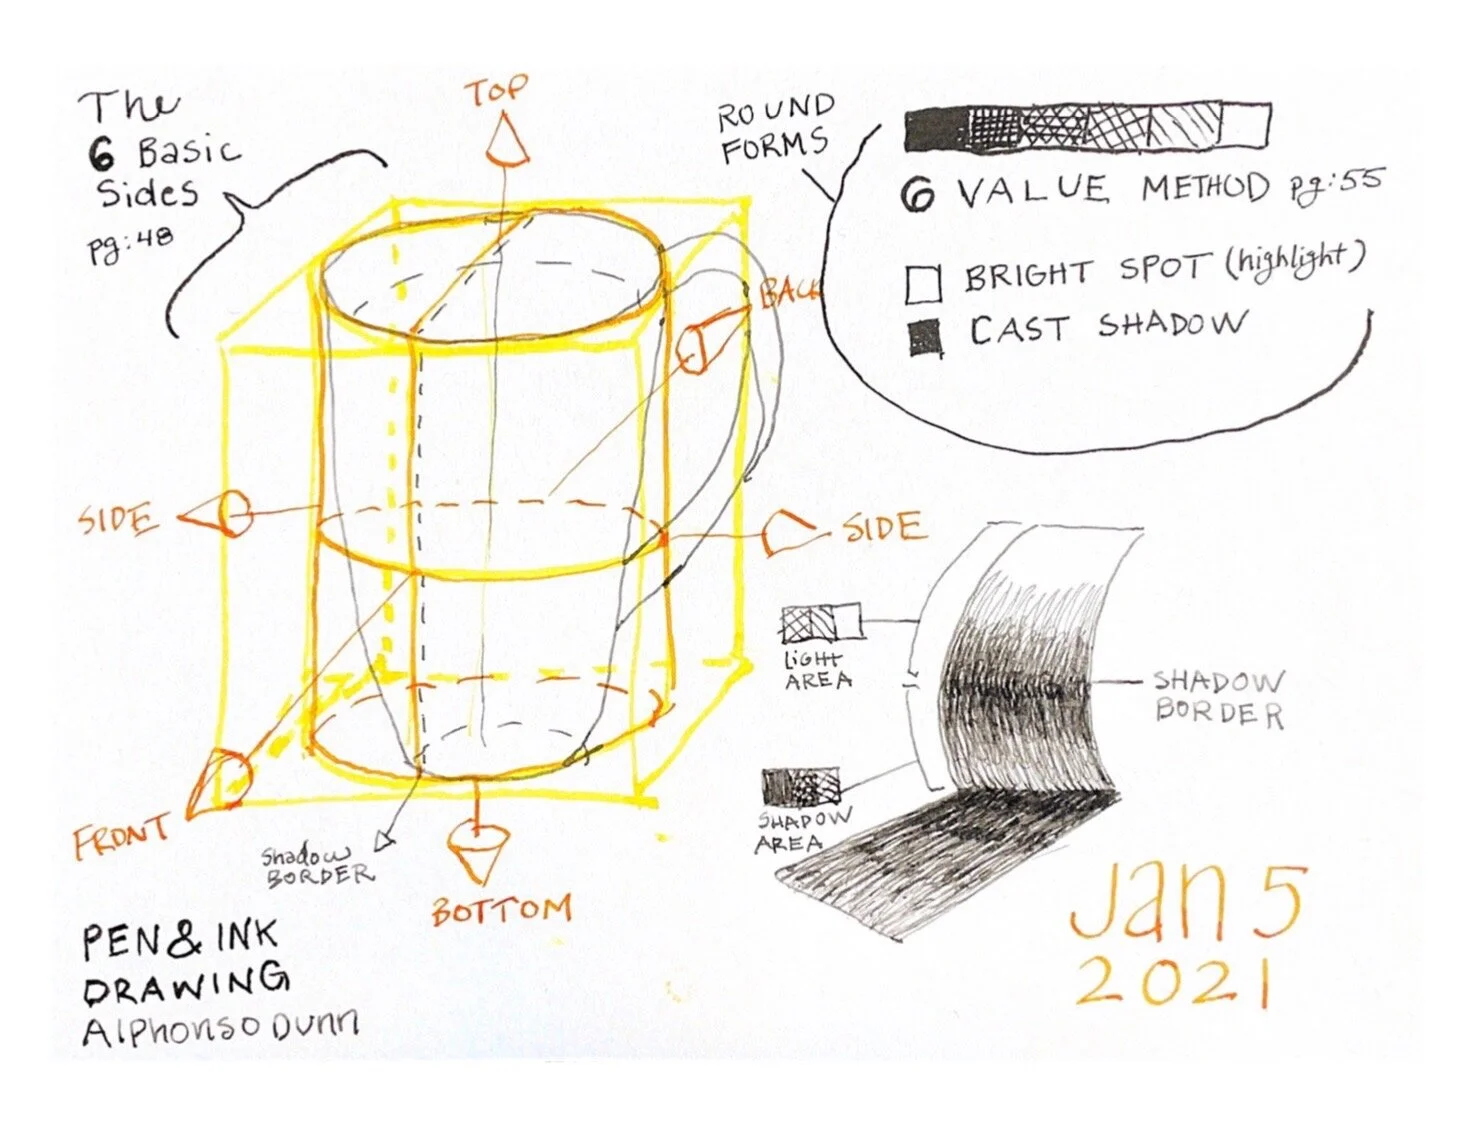 The
6 Basic
Sides
pg:48
TOP
BACK
SIDE
SIDE
FRONT
BOTTOM
Shadow
BORDER
ROUND
FORMS
6 VALUE METHOD pg:55
BRIGHT SPOT (highlight)
CAST SHADOW
LIGHT
AREA
SHADOW
BORDER
SHADOW
AREA
PEN & INK
DRAWING
Alphonso Dunn
Jan 5
2021